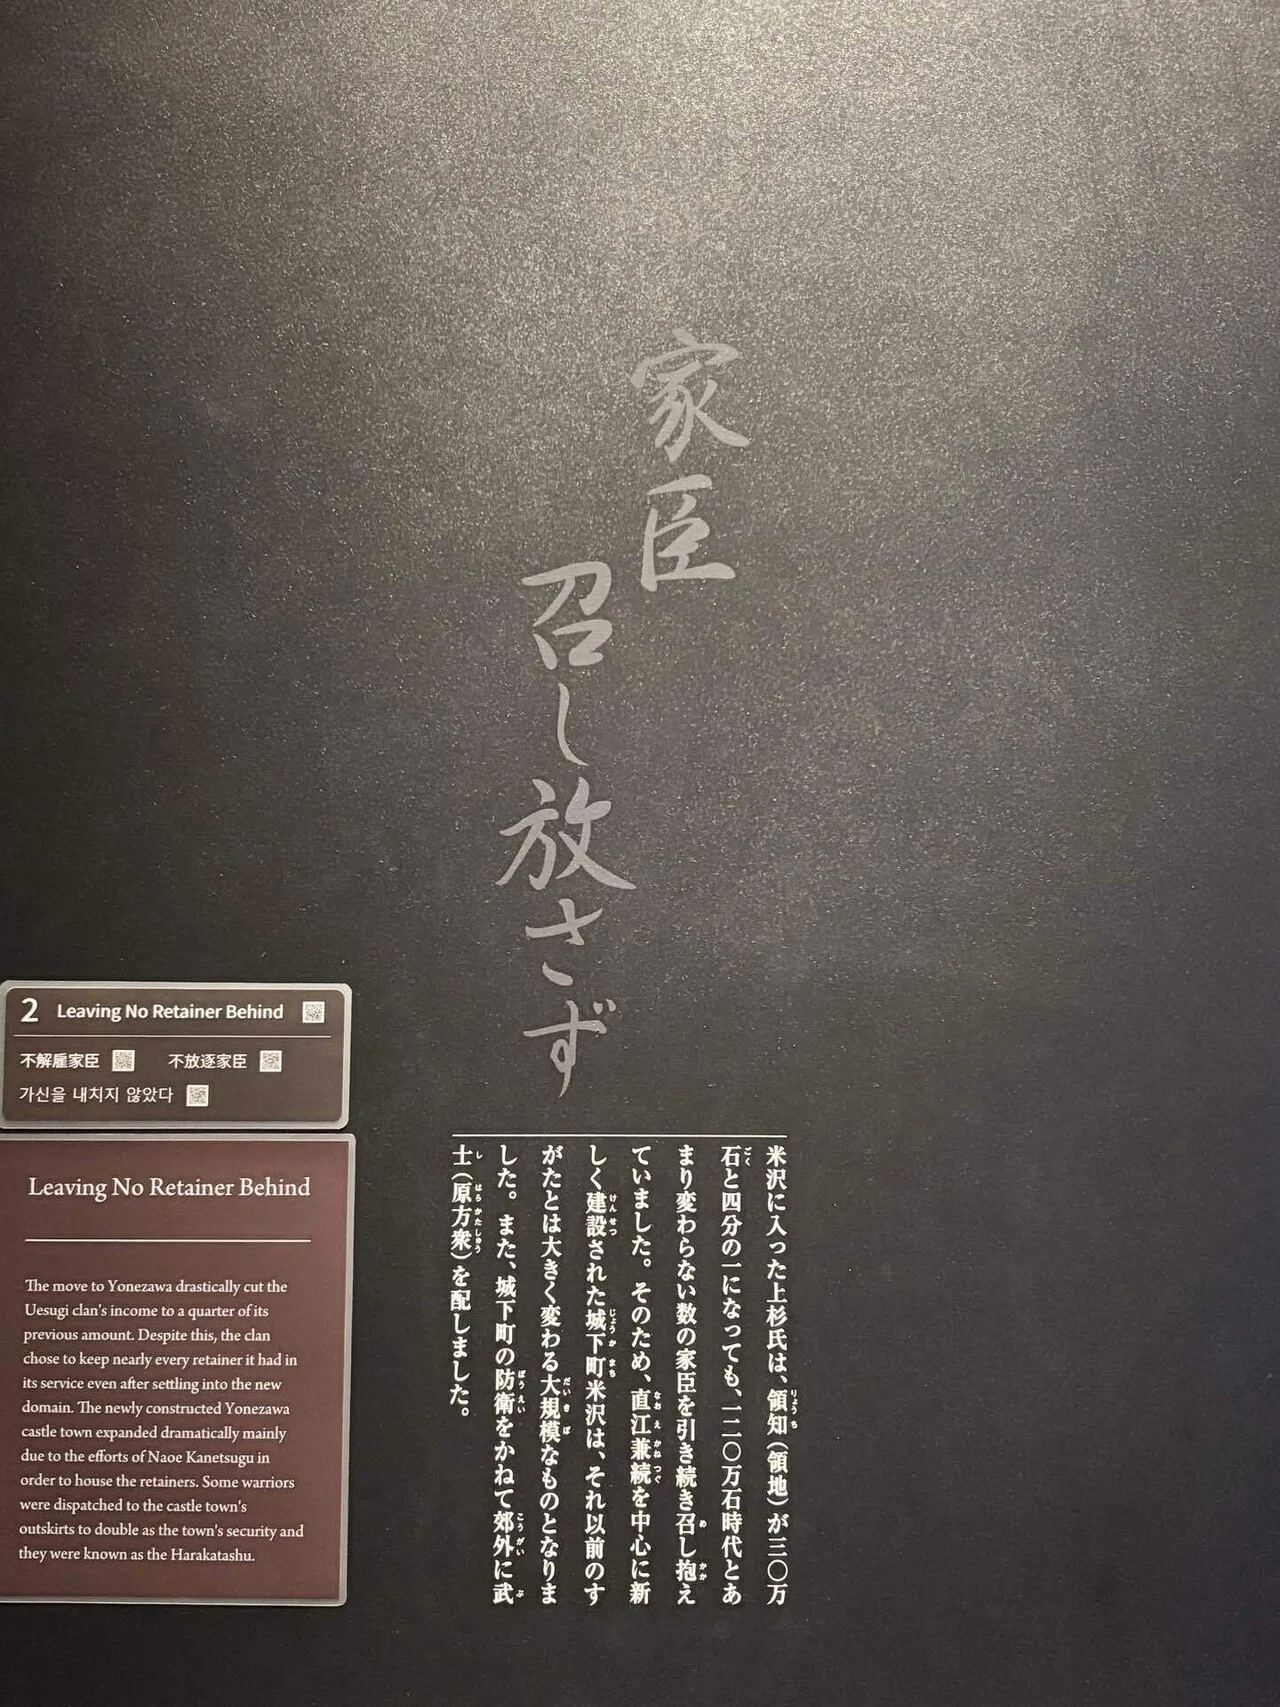 家臣
召し放さず
米沢に入った上杉氏は、領知（領地）が三〇万
石と四分の一になっても、一二〇万石時代とあ
まり変わらない数の家臣を引き続き召し抱え
ていました。そのため、直江兼続を中心に新
しく建設された城下町米沢は、それ以前のす
がたとは大きく変わる大規模なものとなりま
した。また、城下町の防衛をかねて郊外に武
士（原方衆）を配しました。
2 Leaving No Retainer Behind
不解雇家臣 不放逐家臣
가신을 내치지 않았다
Leaving No Retainer Behind
The move to Yonezawa drastically cut the
Uesugi clan's income to a quarter of its
previous amount. Despite this, the clan
chose to keep nearly every retainer it had in
its service even after settling into the new
domain. The newly constructed Yonezawa
castle town expanded dramatically mainly
due to the efforts of Naoe Kanetsugu in
order to house the retainers. Some warriors
were dispatched to the castle town's
outskirts to double as the town's security and
they were known as the Harakatashu.